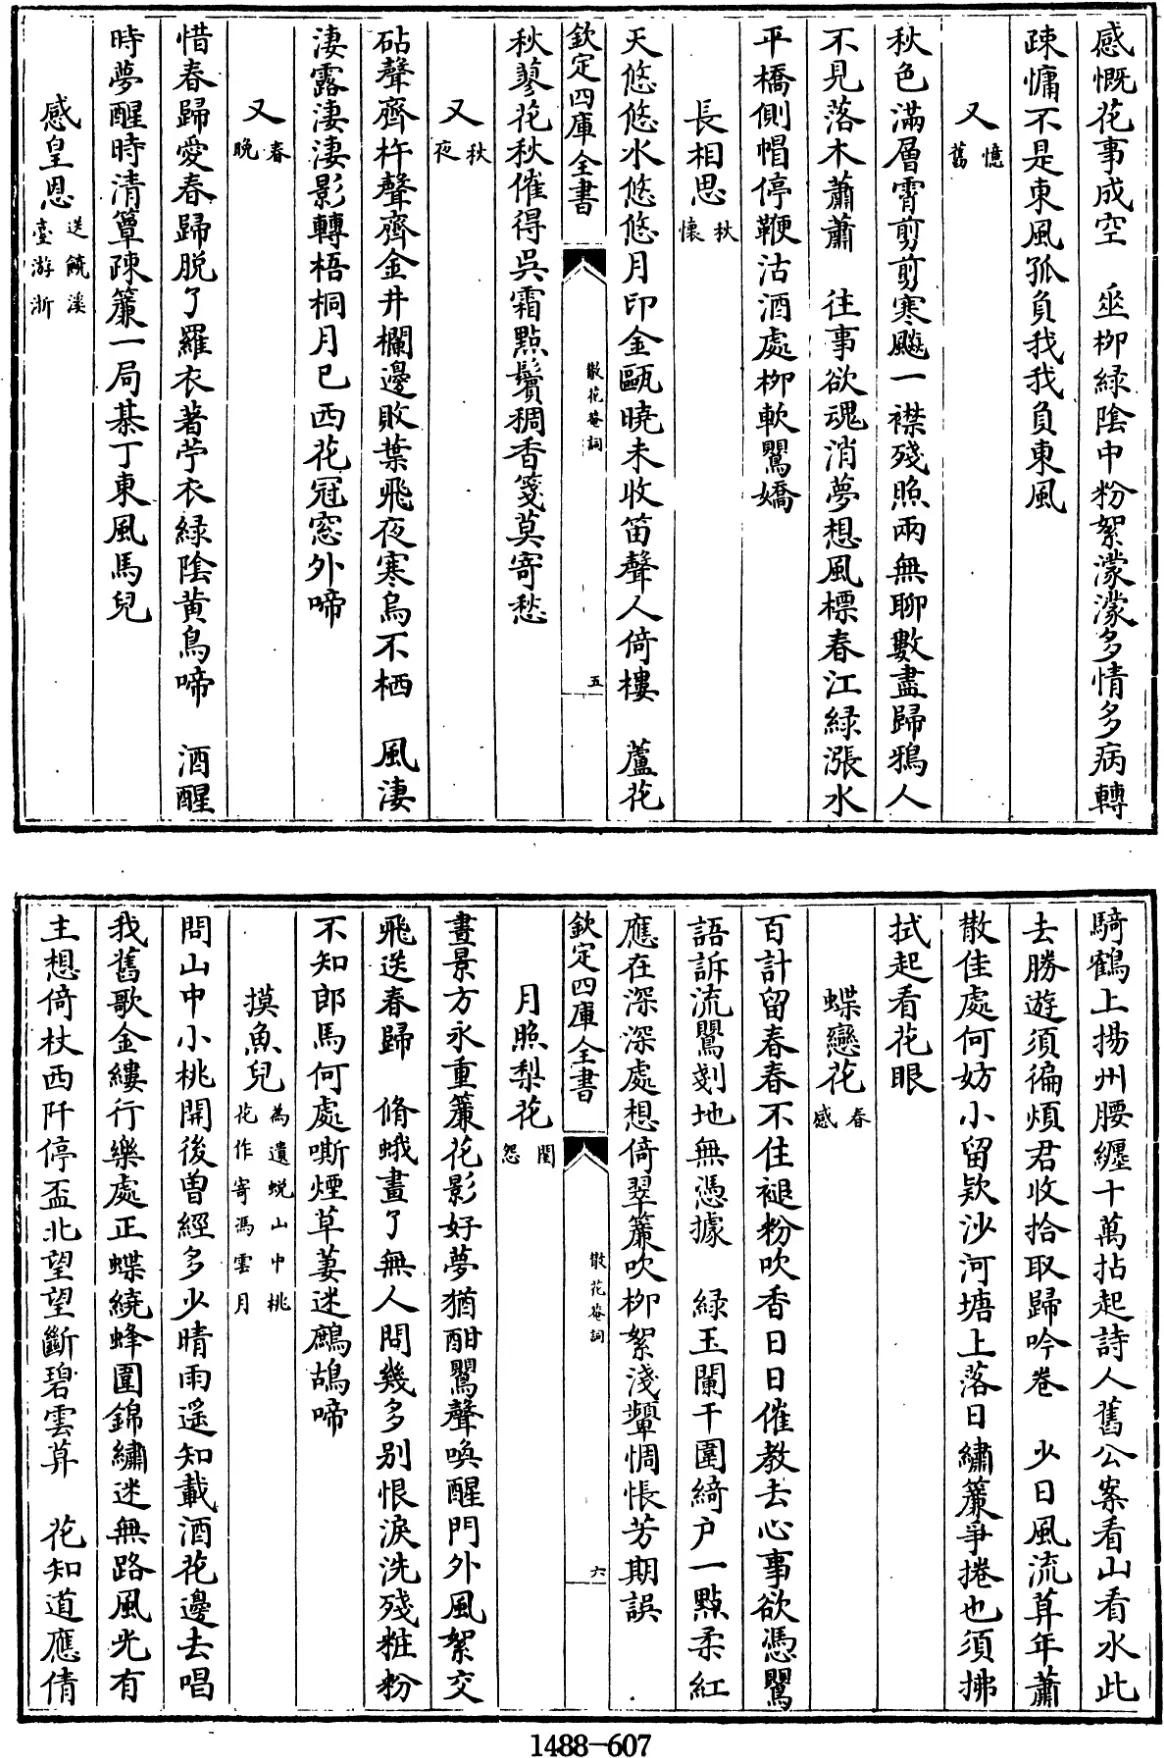 感慨花事成空　坐柳緑陰中粉絮濛濛多情多病轉
疎慵不是東風孤負我我負東風
又憶舊
秋色滿層霄剪剪寒飈一襟殘照兩無聊數盡歸鴉人
不見落木蕭蕭　往事欲魂消夢想風標春江緑漲水
平橋側帽停鞭沽酒處柳軟鶯嬌
長相思秋懷
天悠悠水悠悠月印金甌曉未收笛聲人倚樓　蘆花
欽定四庫全書　散花菴詞　五
秋蓼花秋催得吳霜點鬢稠香箋莫寄愁
又秋夜
砧聲齊杵聲齊金井欄邊敗葉飛夜寒烏不栖　風淒
淒露淒淒影轉梧桐月已西花冠窓外啼
又春晚
惜春歸愛春歸脱了羅衣著苧衣緑陰黄鳥啼　酒醒
時夢醒時清簟疎簾一局棊丁東風馬兒
感皇恩送饒溪臺游浙
騎鶴上揚州腰纏十萬拈起詩人舊公案看山看水此
去勝遊須徧煩君收拾取歸吟卷　少日風流算年蕭
散佳處何妨小留欵沙河塘上落日繡簾爭捲也須拂
拭起看花眼
蝶戀花春感
百計留春春不住褪粉吹香日日催教去心事欲憑鶯
語訴流鶯剗地無憑據　緑玉闌干圍綺户一點柔紅
應在深深處想倚翠簾吹柳絮淺顰惆悵芳期誤
欽定四庫全書　散花菴詞　六
月照梨花閨怨
晝景方永重簾花影好夢猶酣鶯聲喚醒門外風絮交
飛送春歸　脩蛾畫了無人問幾多别恨淚洗殘粧粉
不知郎馬何處嘶煙草萋迷鷓鴣啼
摸魚兒為遺蜕山中桃花作寄馮雲月
問山中小桃開後曾經多少晴雨遥知載酒花邊去唱
我舊歌金縷行樂處正蝶繞蜂圍錦繡迷無路風光有
主想倚杖西阡停盃北望望斷碧雲算　花知道應倩
1488—607